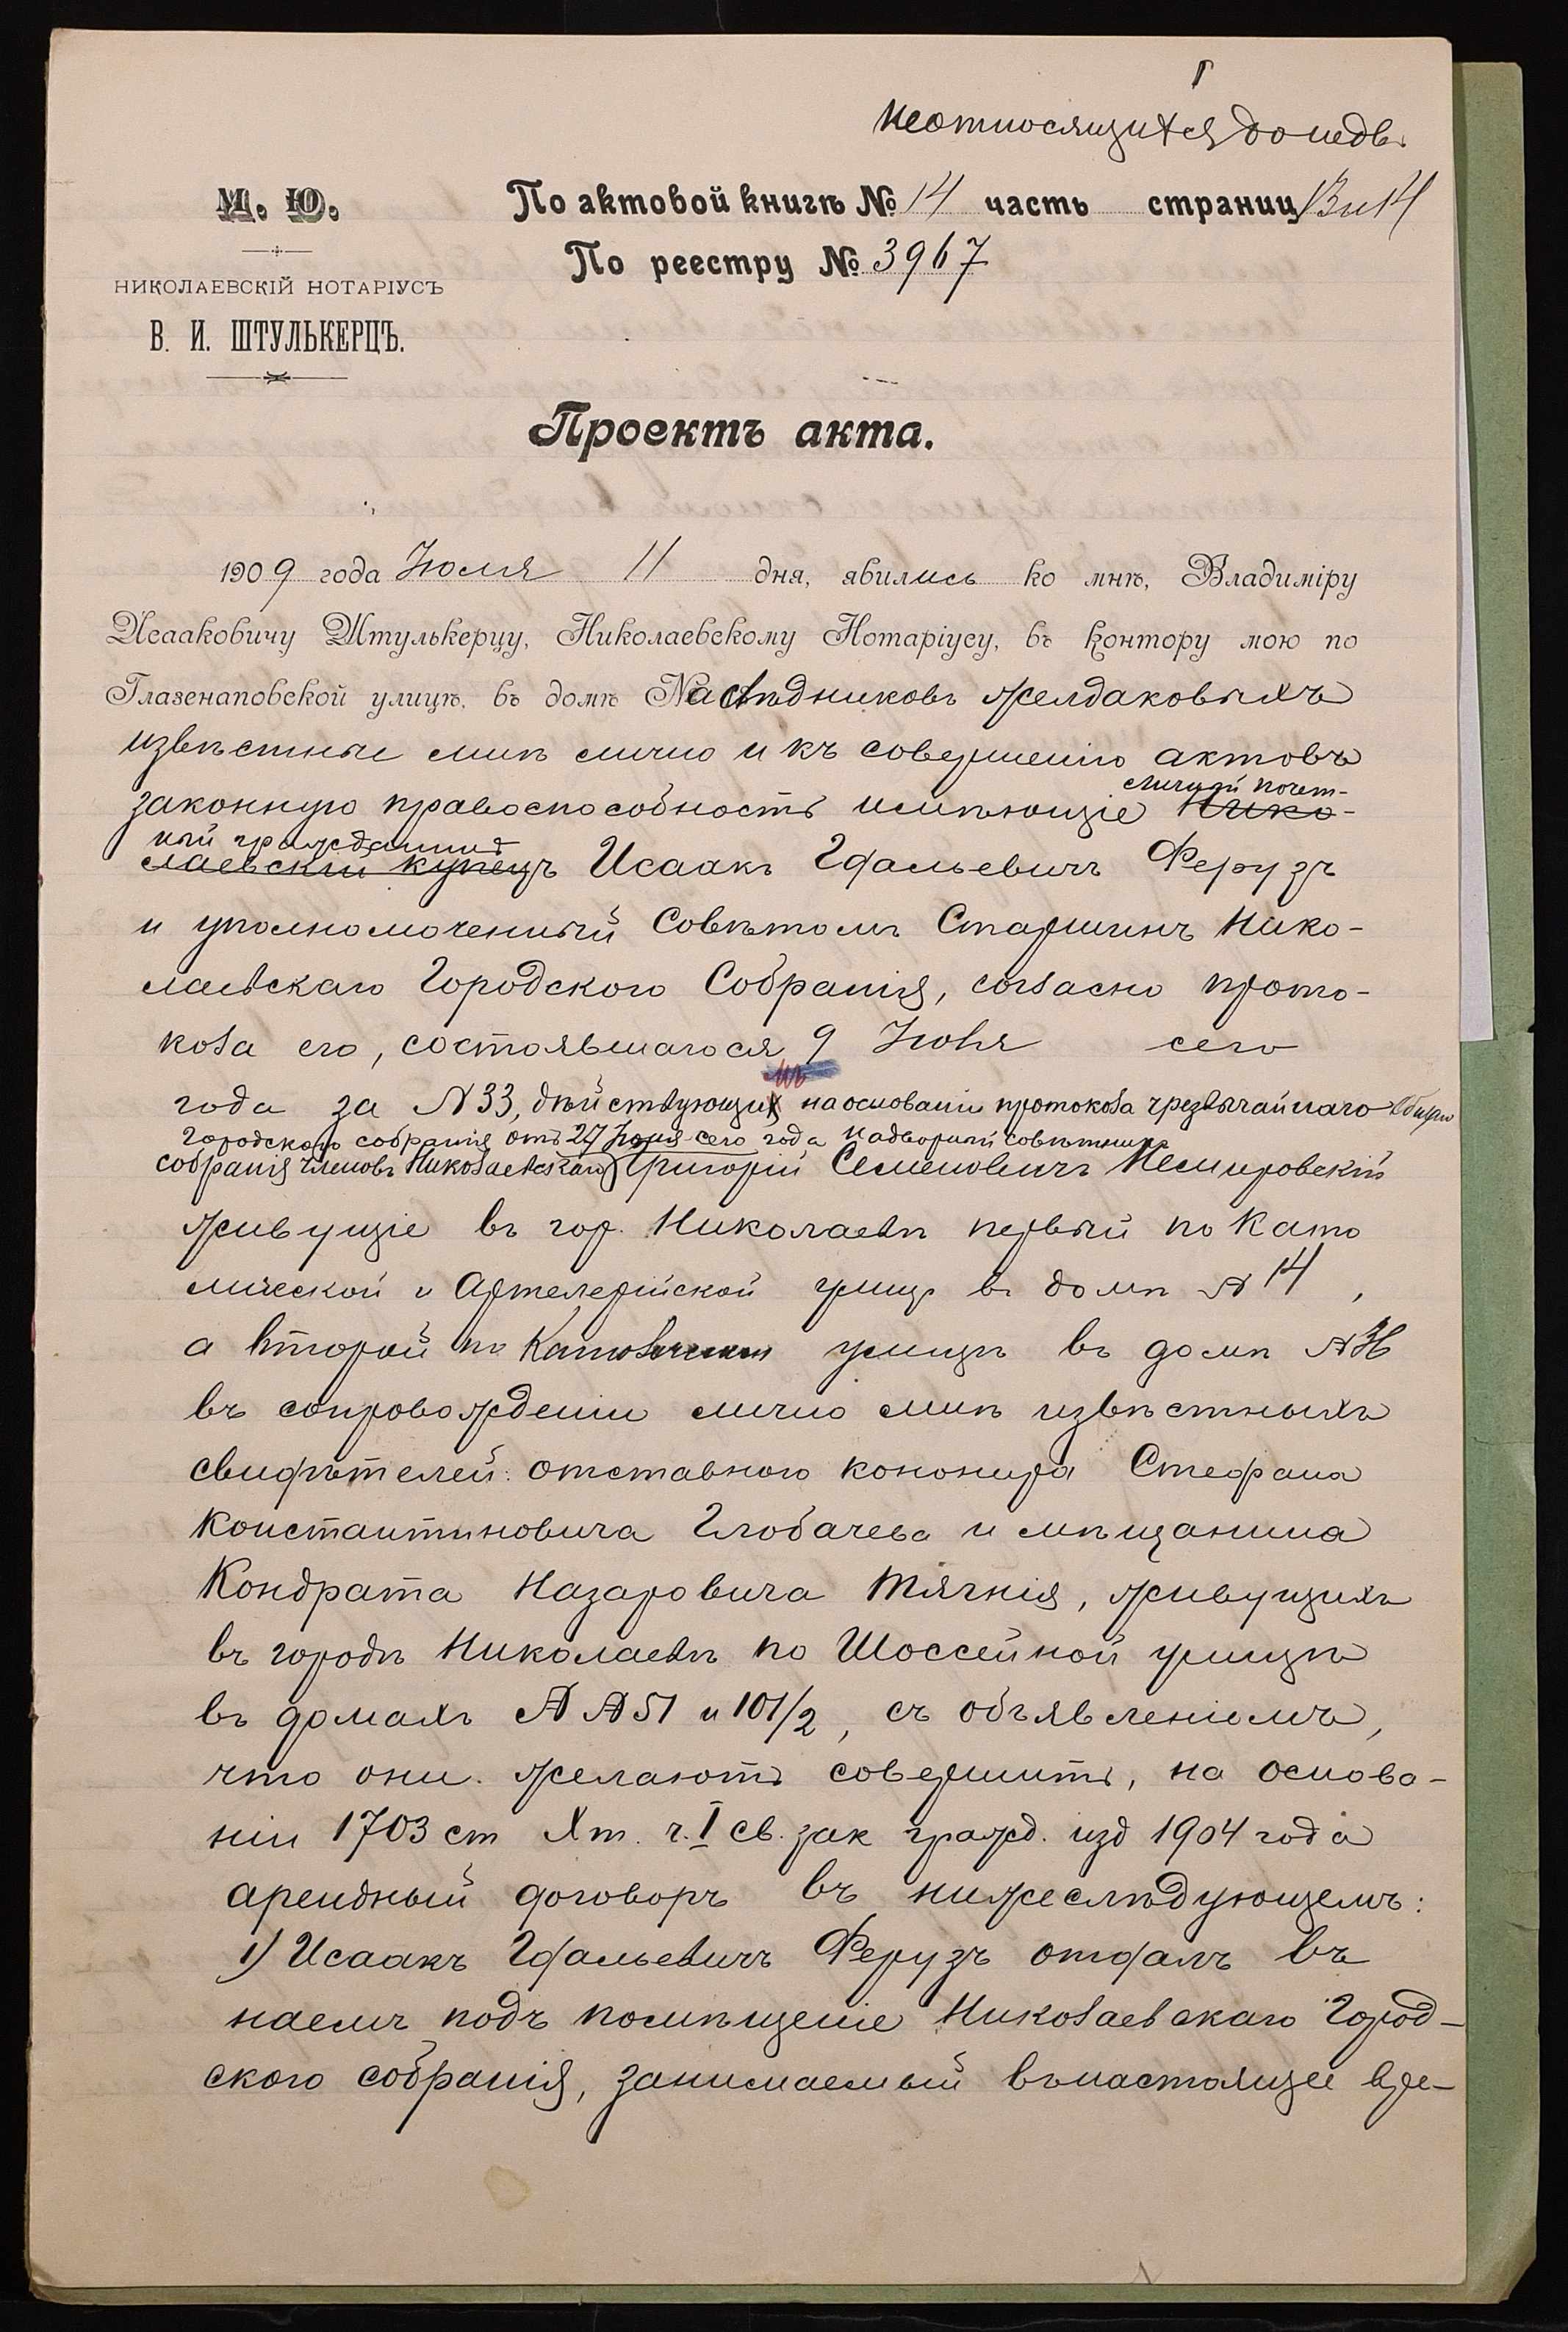 1
Неотносящихся до недв.
М. Ю.
По актовой книгѣ № 14 часть страниц 13 и 14
По реестру № 3967
НИКОЛАЕВСКІЙ НОТАРІУСЪ
В. И. ШТУЛЬКЕРЦЪ.
Проектъ акта.
1909 года Іюля 11 дня, явились ко мнѣ, Владиміру
Исааковичу Штулькерцу, Николаевскому Нотаріусу, въ контору мою по
Глазенаповской улицѣ, въ домѣ Наслѣдниковъ Желдаковыхъ
извѣстные мнѣ лично и къ совершенію актовъ
личный почет-
законную правоспособность имѣющіе Нико-
ный гражданинъ
лаевскій купецъ Исаакъ Эфальевичъ Ферузъ
и уполномоченный Совѣтомъ Старшинъ Нико-
лаевскаго Городского Собранія, согласно прото-
кола его, состоявшагося 9 Іюля сего
года за № 33, дѣйствующимъ на основаніи протокола чрезвычайнаго общаго
Городского собранія отъ 27 Іюня сего года надворный совѣтникъ
собранія членовъ Николаевскаго Григорій Семеновичъ Немировскій
живущіе въ гор. Николаевѣ первый по Като
лической и Артелерійской улиц. въ домѣ № 14,
а второй по Католической улицѣ въ домѣ №
въ сопровожденіи лично мнѣ извѣстныхъ
свидѣтелей: отставного кононира Стефана
Константиновича Глобачева и мѣщанина
Кондрата Назаровича Тягнія, живущихъ
въ городѣ Николаевѣ по Шоссейной улицѣ
въ домахъ № № 51 и 101/2, съ объявленіемъ,
что они желаютъ совершить, на основа-
ніи 1703 ст X т. ч. I св. зак гражд. изд 1904 года
арендный договоръ въ нижеслѣдующемъ:
1) Исаакъ Эфальевичъ Ферузъ отдалъ въ
наемъ подъ помѣщеніе Николаевскаго Город-
ского собранія, занимаемый въ настоящее вре-